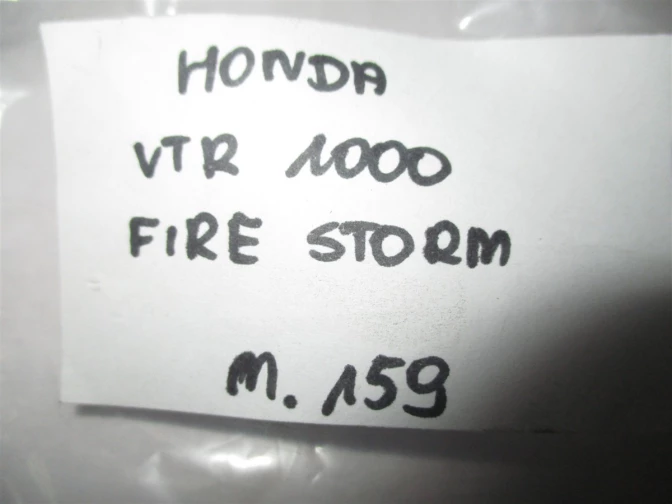 HONDA
VTR 1000
FIRE STORM
M. 159